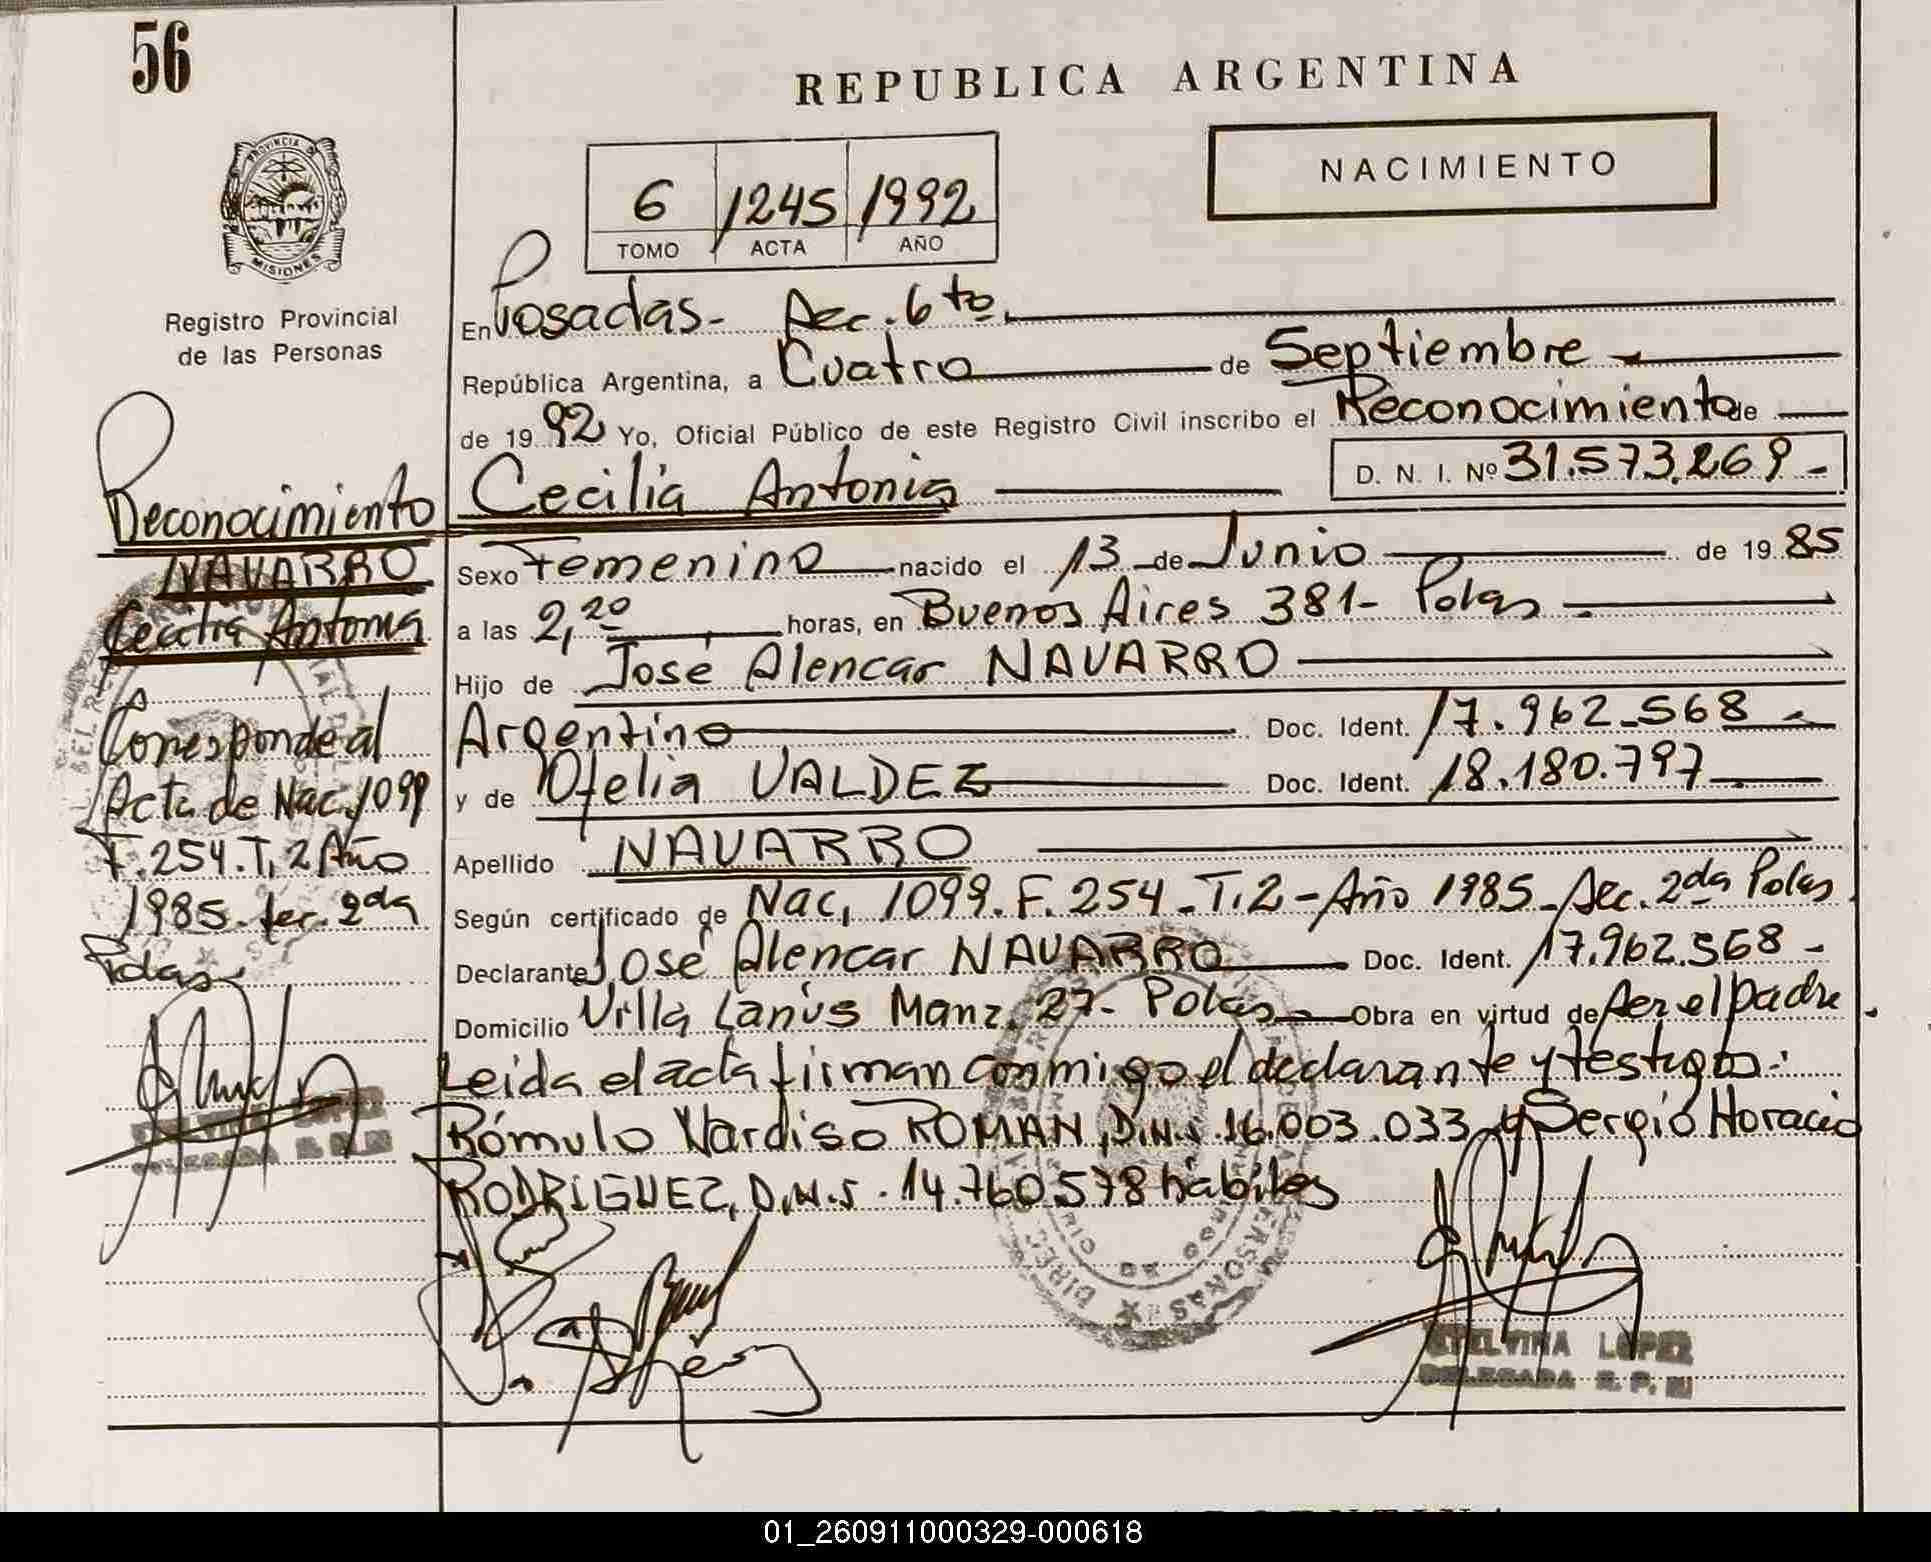 56
REPUBLICA ARGENTINA
NACIMIENTO
6 1245 1992
TOMO ACTA AÑO
PROVINCIA DE
MISIONES
Registro Provincial
de las Personas
En Posadas - Sec. 6to.
República Argentina, a Cuatro de Septiembre
de 1992 Yo, Oficial Público de este Registro Civil inscribo el Reconocimiento de
Cecilia Antonia D. N. I. Nº 31.573.269 -
Sexo Femenino nacido el 13 de Junio de 1985
a las 2,20 horas, en Buenos Aires 381 - Pdas
Hijo de José Alencar NAVARRO
Argentino Doc. Ident. 17.962.568
y de Ofelia VALDEZ Doc. Ident. 18.180.797
Apellido NAVARRO
Según certificado de Nac. 1099. F. 254 - T. 2 - Año 1985 - Sec. 2da Pdas.
Declarante José Alencar NAVARRO Doc. Ident. 17.962.568 -
Domicilio Villa Lanús Manz. 27 - Pdas Obra en virtud de ser el padre.
Leída el acta firman conmigo el declarante y testigos:
Rómulo Nardiso ROMAN, D.N.I. 16.003.033 y Sergio Horacio
RODRIGUEZ, D.N.I. 14.760.578 hábiles
Reconocimiento
NAVARRO
Cecilia Antonia
Corresponde al
Acta de Nac. 1099
F. 254. T. 2 Año
1985. Sec. 2da
Pdas
DELEGADA R. P.
ETELVINA LOPEZ
DELEGADA R. P.
01_260911000329-000618